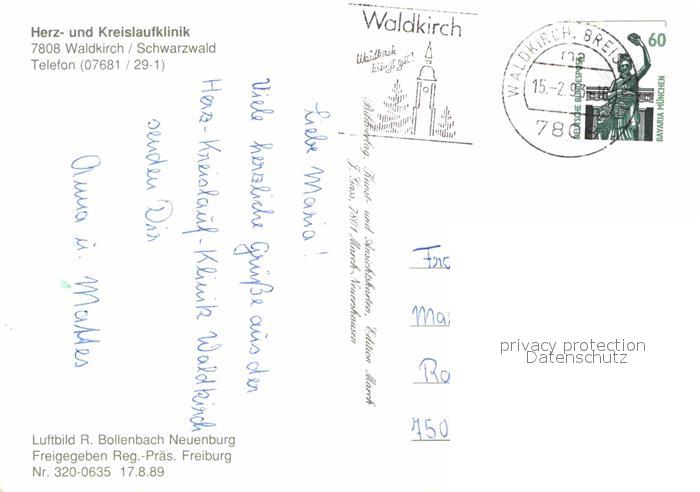 Herz- und Kreislaufklinik
7808 Waldkirch / Schwarzwald
Telefon (07681 / 29-1)
Waldkirch
Waldkirch
WALDKIRCH, BREIS
ma
15.-2.9
7808
60
DEUTSCHE BUNDESPOST
BAVARIA MÜNCHEN
Liebe Maria!
Viele herzliche Grüße aus der
Herz-Kreislauf-Klinik Waldkirch
senden Dir
Anna u. Mattes
Bildverlag, Kunst- und Ansichtskarten, Edition March
J. Gass, 7801 March-Neuershausen
Fra
Ma
Ro
750
privacy protection
Datenschutz
Luftbild R. Bollenbach Neuenburg
Freigegeben Reg.-Präs. Freiburg
Nr. 320-0635 17.8.89